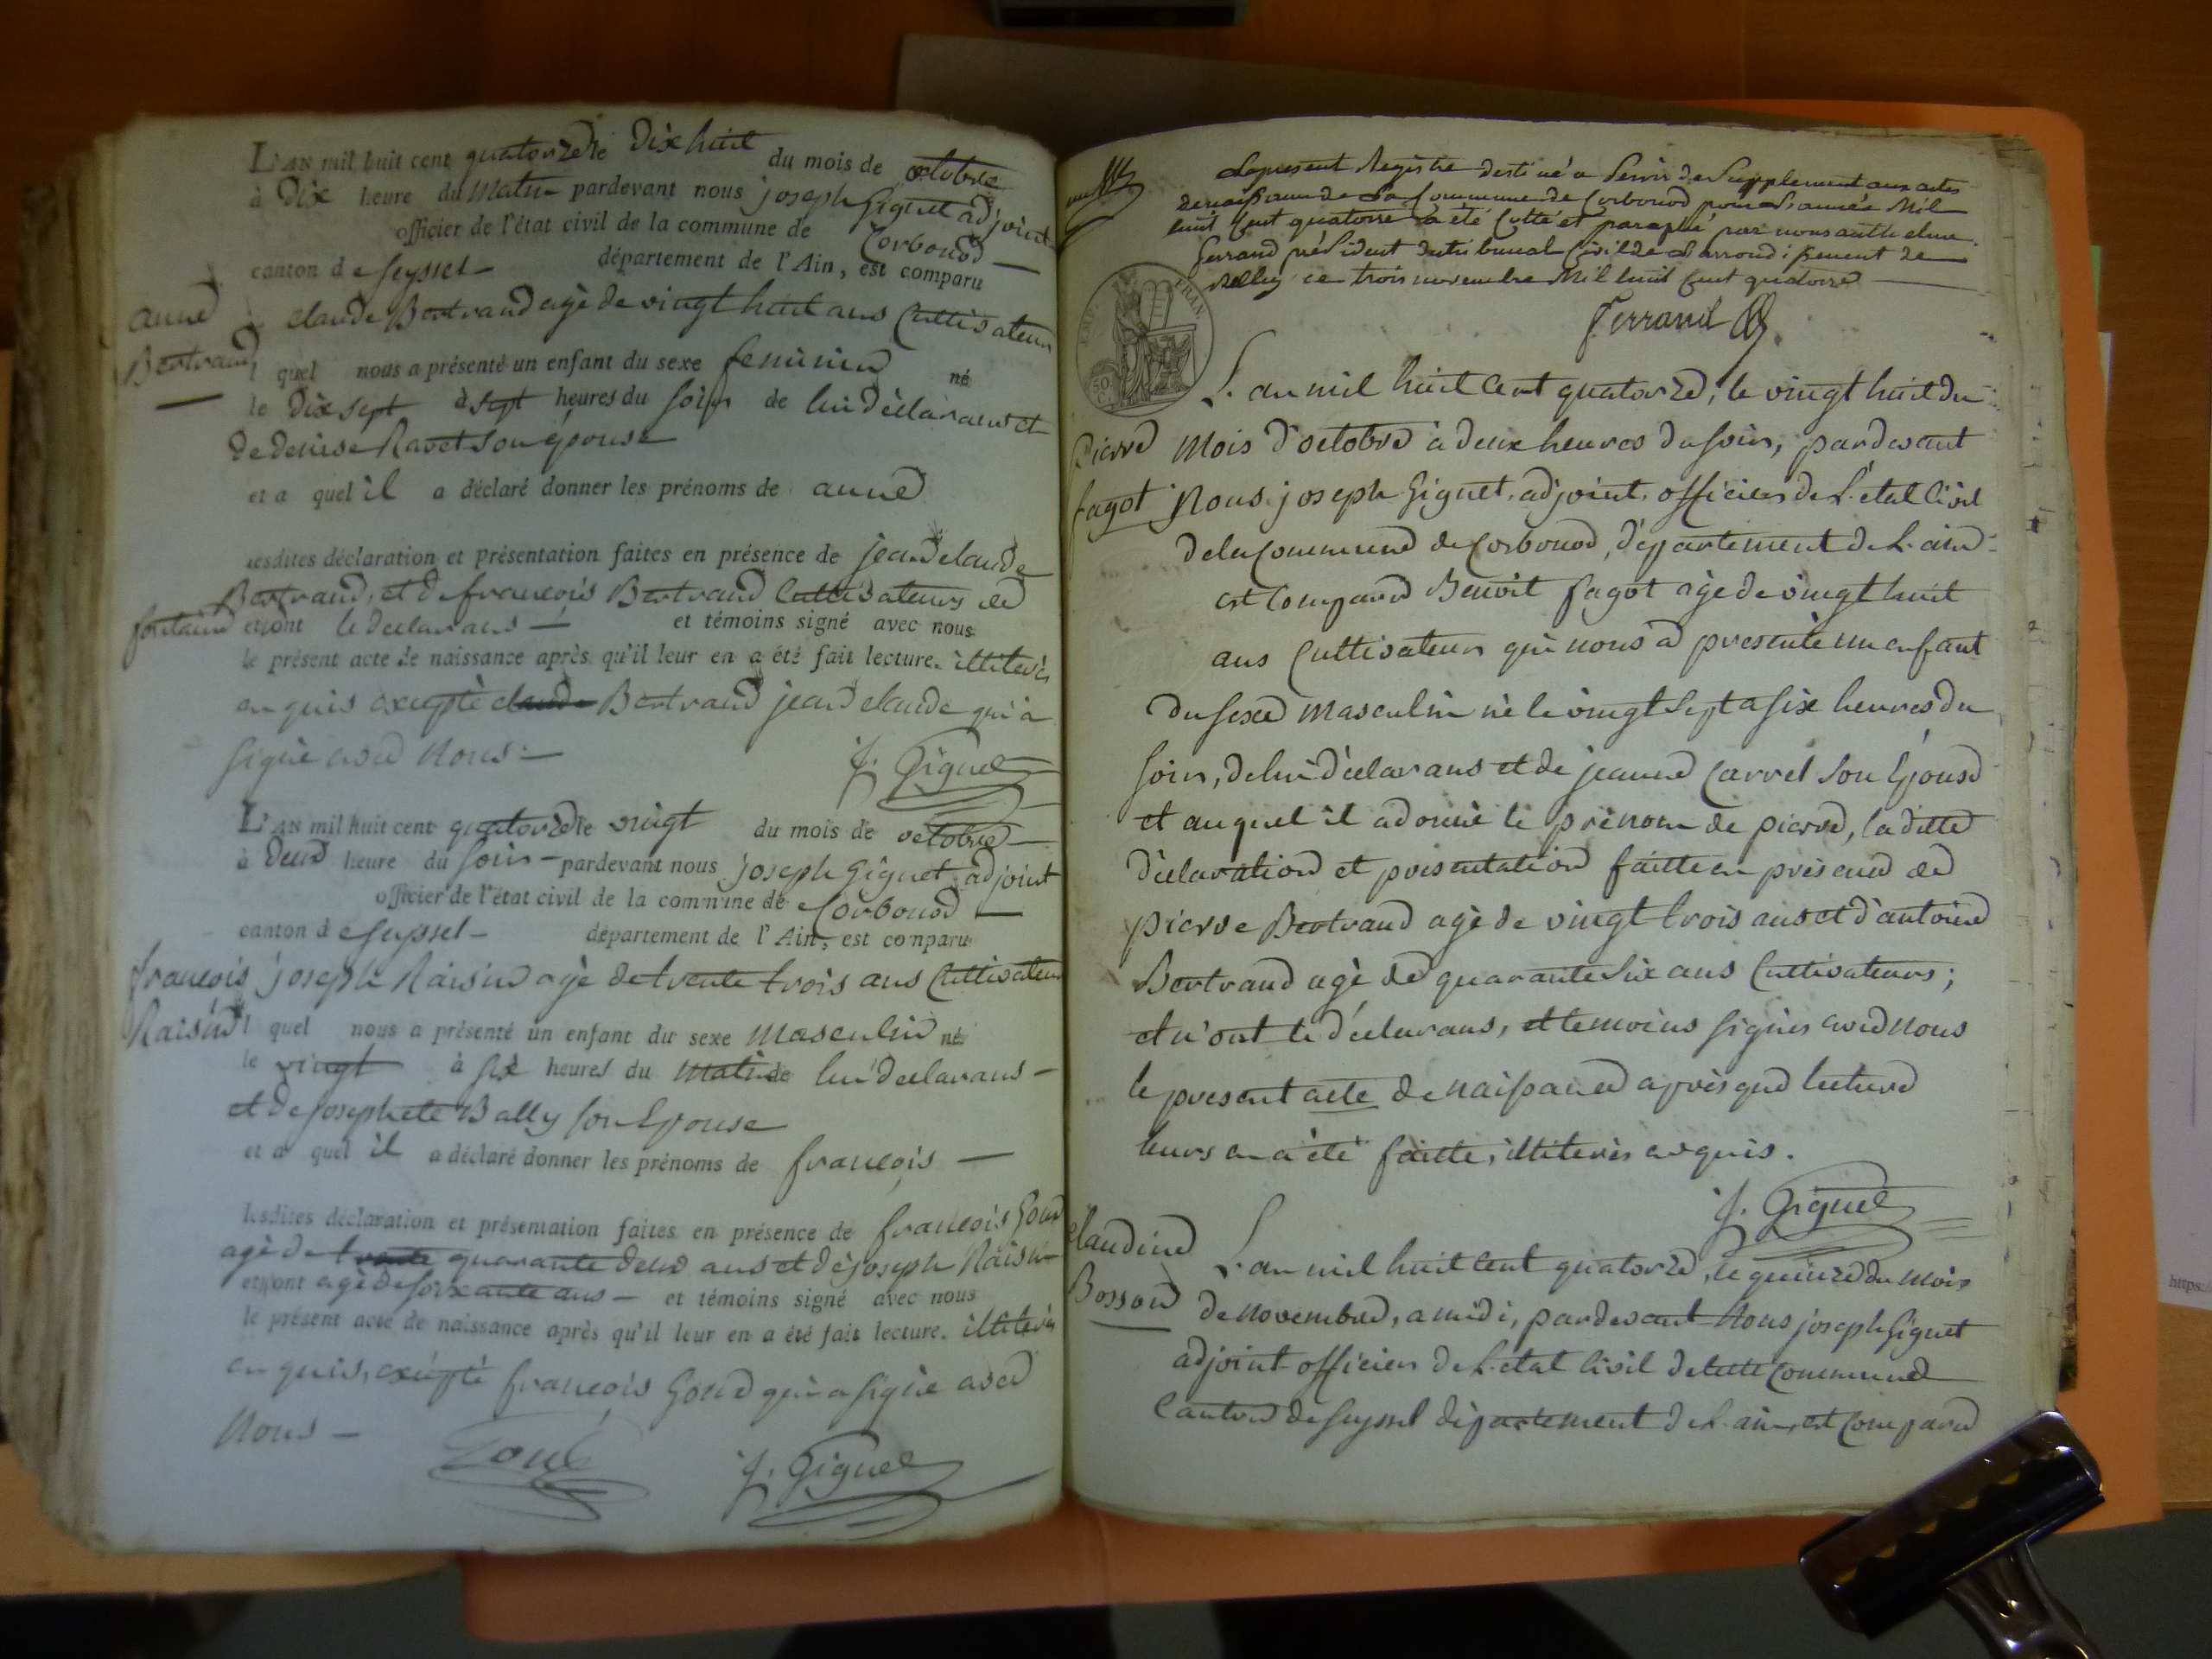 L'AN mil huit cent quatorze le Dix huit du mois de octobre
à Dix heure du Matin pardevant nous joseph Giguet adjoint
officier de l'état civil de la commune de Corbonod
canton de Seyssel département de l'Ain, est comparu
anne
Bertrand
claude Bertrand agè de vingt huit ans Cultivateur
l quel nous a présenté un enfant du sexe feminin né
le Dix sept à sept heures du soir de lui dèclarans et
de denise Ravet son épouse
et a quel il a déclaré donner les prénoms de anne
lesdites déclaration et présentation faites en présence de jean claude
Bertrand, et de francois Bertrand Cultivateurs de
fontaine et ont le declarans et témoins signé avec nous
le présent acte de naissance après qu'il leur en a été fait lecture. illiterès
enquis exceptè claude Bertrand jean claude qui a
signè avec nous
J. Giguet
L'AN mil huit cent quatorze le vingt du mois de octobre
à Deux heure du soir pardevant nous joseph Giguet adjoint
officier de l'état civil de la commune de Corbonod
canton de Seyssel département de l'Ain, est comparu
francois
Raisin
joseph Raisin agè de trente trois ans Cultivateur
l quel nous a présenté un enfant du sexe Masculin né
le vingt à six heures du matin de lui declarans
et de josephete Bally son Epouse
et a quel il a déclaré donner les prénoms de francois
lesdites déclaration et présentation faites en présence de francois Goud
agè de trente quarante deux ans et de joseph Raisin
et ont agè de soixante ans et témoins signé avec nous
le présent acte de naissance après qu'il leur en a été fait lecture. illiterès
enquis, exceptè francois Goud qui a signè avec
Nous
Goud J. Giguet
Le present Registre destiné a Servir de Supplement aux actes
de naissance de La Commune de Corbonod pour L'année Mil
huit Cent quatorze a été Cotté et paraphé par nous anthelme
Ferrand président du tribunal Civil de L'arrondissement de
Belley ce trois novembre Mil huit Cent quatorze
Ferrand
EMP. FRAN.
50
C.
L'an mil huit Cent quatorze, le vingt huit du
Pierre
fagot
Mois d'octobre à deux heures du soir, pardevant
Nous joseph Giguet, adjoint, officier de L'etat Civil
de la Commune de Corbonod, dèpartement de L'ain
est Comparu Benoit fagot agè de vingt huit
ans Cultivateur qui nous a presentè un enfant
du sexe masculin nè le vingt sept a six heures du
soir, de lui dèclarans et de jeanne Carrel son Epouse
et auquel il a donnè le prènom de pierre, la ditte
dèclaration et presentation faitte en prèsence de
pierre Bertrand agè de vingt trois ans et d'antoine
Bertrand agè de quarante six ans Cultivateurs;
et n'ont le dèclarans, et temoins signès avec nous
le present acte de naissance après que lecture
leurs en a étè faitte, illiterès enquis.
J. Giguet
claudine
Bosson
L'an mil huit Cent quatorze, le quinze du mois
de novembre, a midi, pardevant Nous joseph Giguet
adjoint officier de L'etat Civil de cette Commune
Canton de Seyssel dèpartement de L'ain, est Comparu
https: